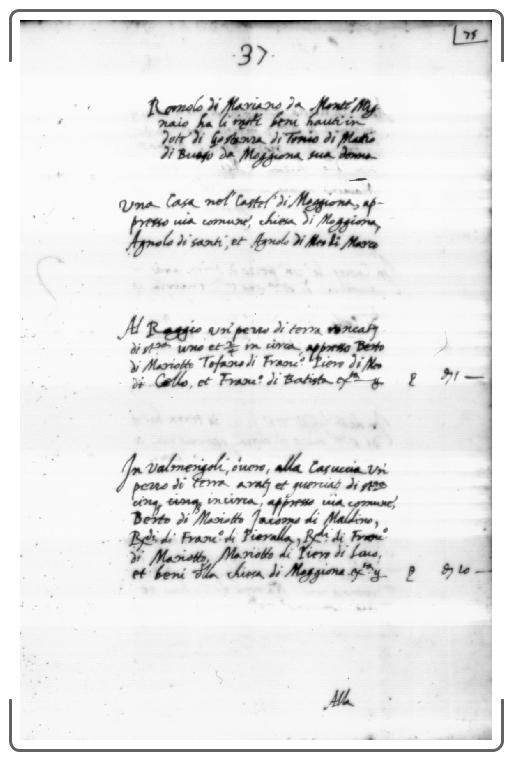 75
·37·
Romolo di Mariano da Monte Mig
naio ha li inſti beni hauti in
dote di Gostanza di Tonio di Matio
di Buoso da Moggiona sua donna
Una Casa nel Castel di Moggiona, ap-
presso uia comune, chiesa di Moggiona,
Agnolo di santi, et Agnolo di Meo di Marco
Al Raggio un pezzo di terra
di uno et in circa appresso Berto
di Mariotto Tofano di Franc.º Piero di Meo
di Cello, et Franc.º di Batista
In Valmengoli, ouero, alla Casuccia un
pezzo di terra et querciat di
cinq in circa, appresso uia comune,
Berto di Mariotto Jacomo di Maldino,
di Franc.º di Pieralla, di Franc.º
di Mariotto, Mariotto di Piero di
et beni della chiesa di Moggiona
Alla